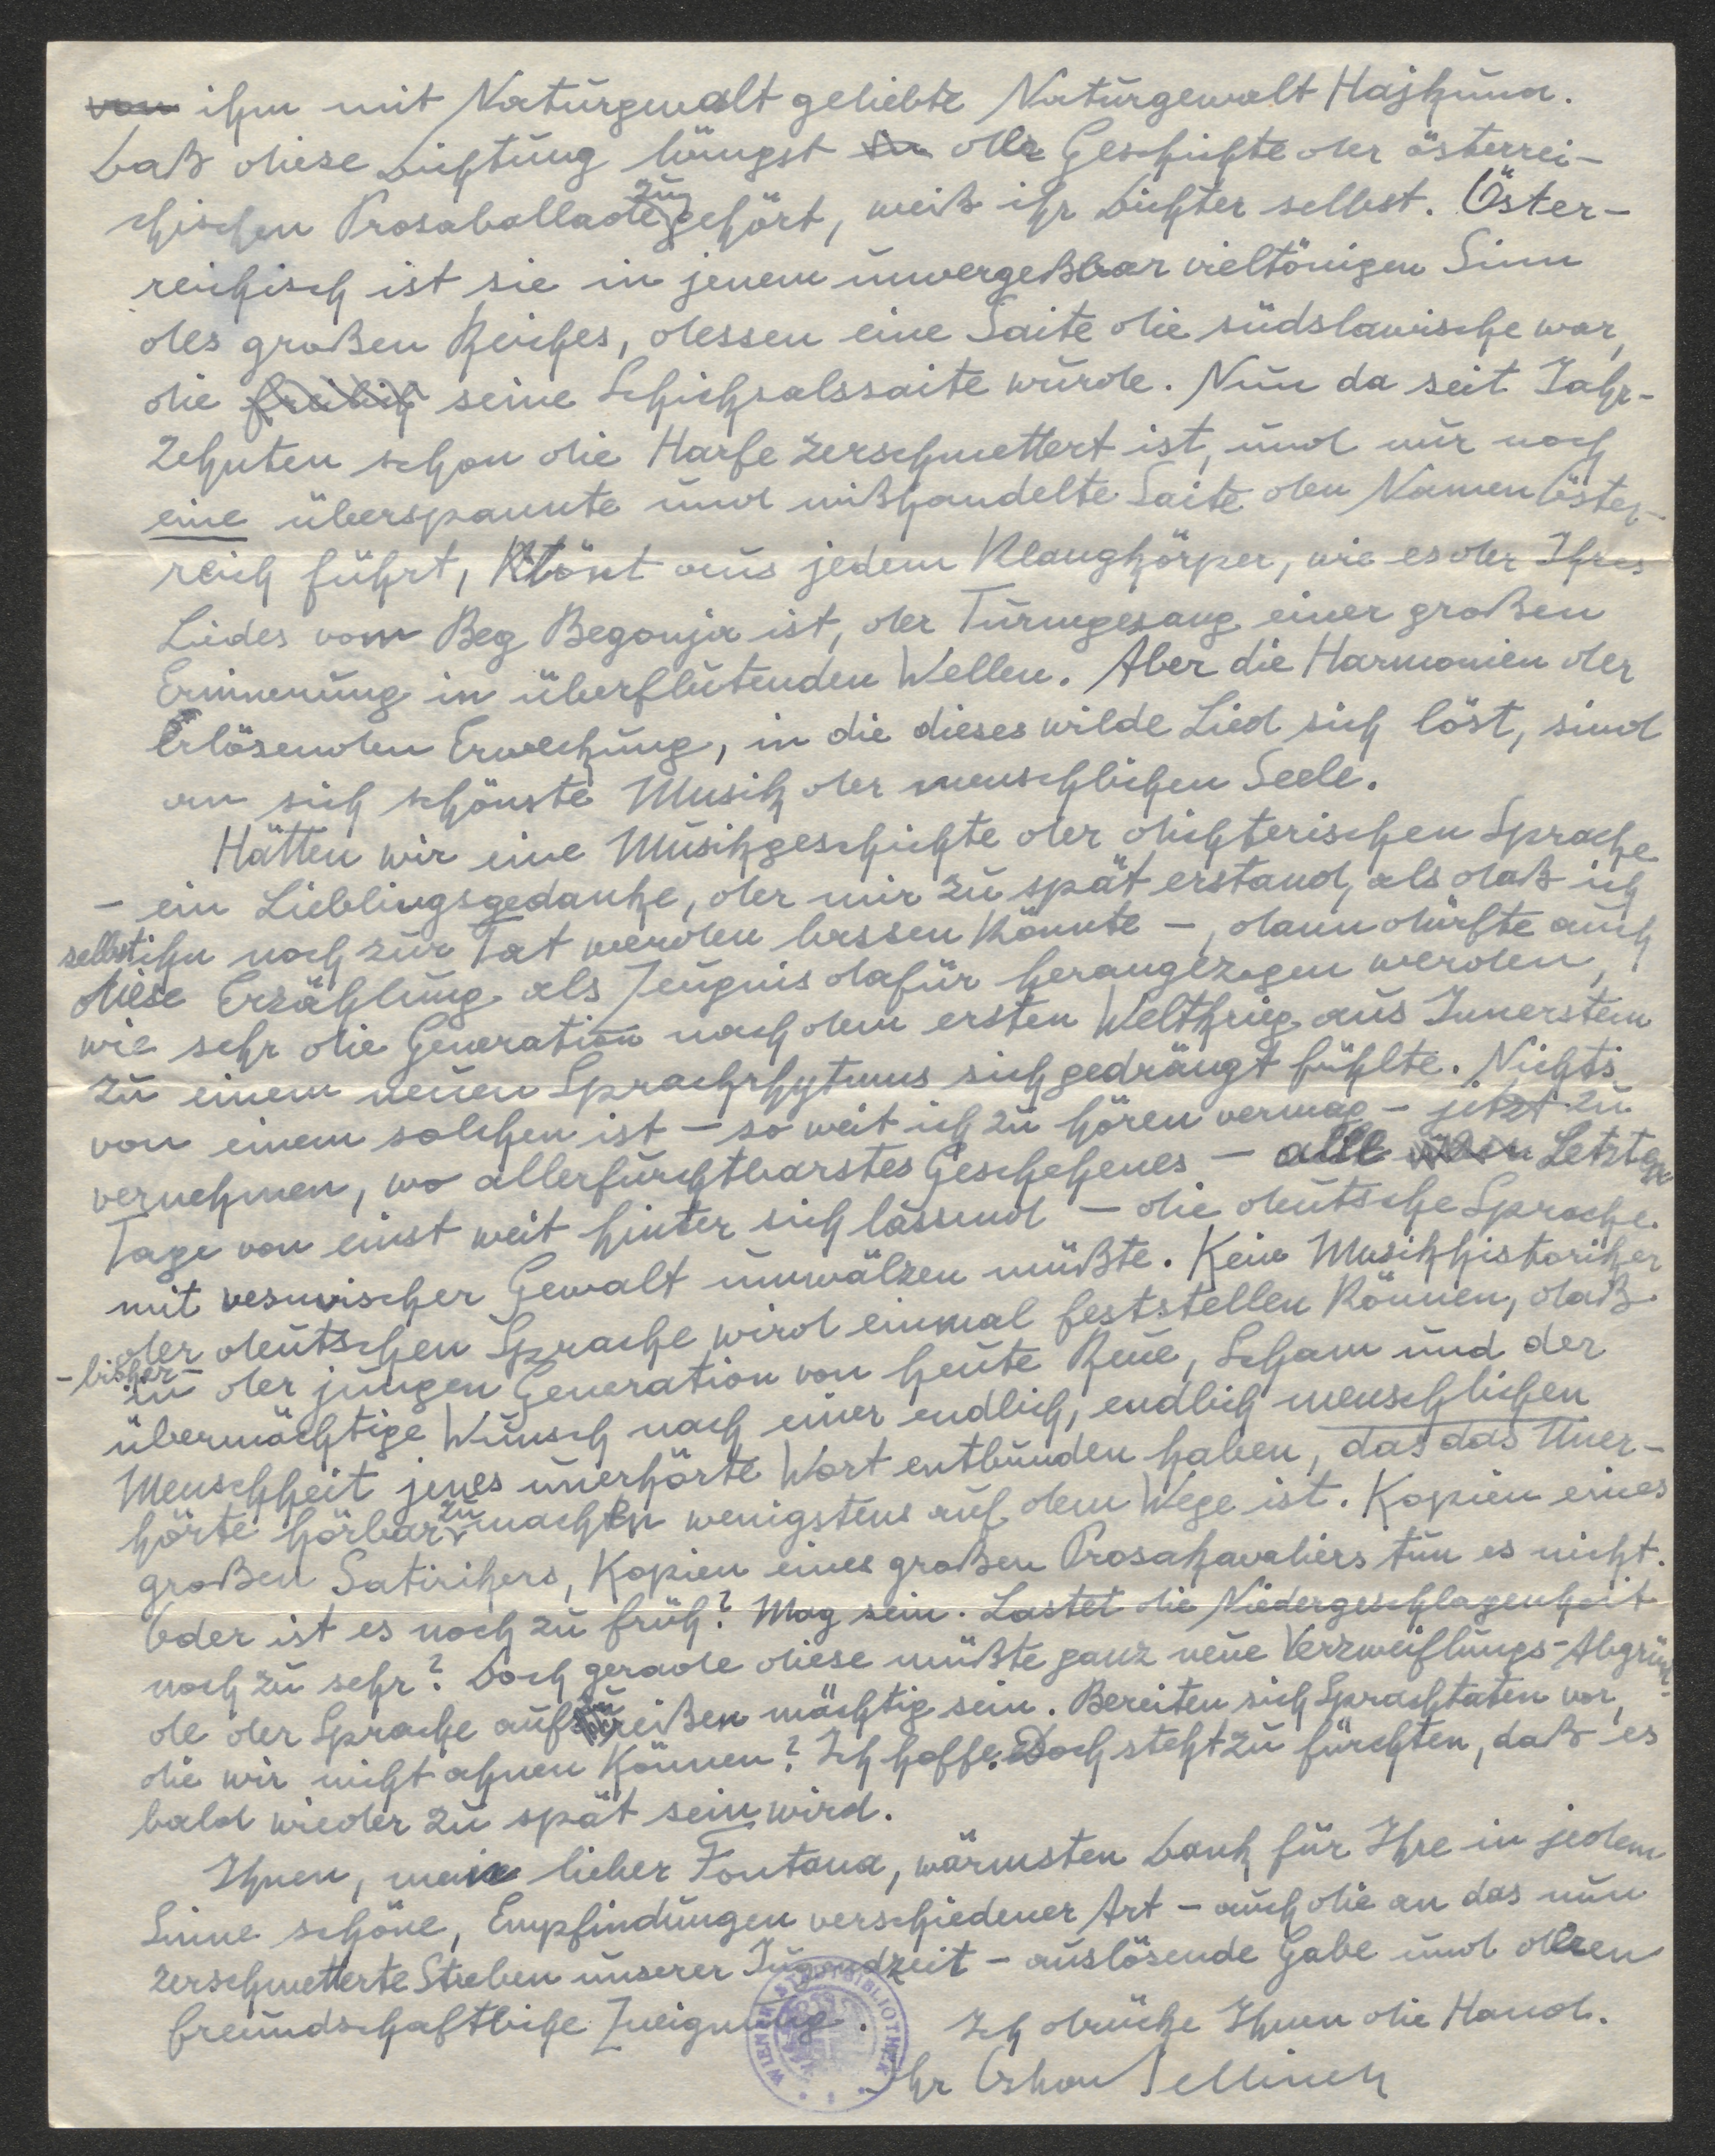 von ihm mit Naturgewalt geliebte Naturgewalt Hajkuna.
Daß diese Dichtung längst in der Geschichte der österrei-
chischen Prosaballade zugehört, weiß ihr Dichter selbst. Öster-
reichisch ist sie in jenem unvergeßbar vieltönigen Sinn
des großen Reiches, dessen eine Saite die südslawische war,
die freilich seine Schicksalssaite wurde. Nun da seit Jahr-
zehnten schon die Harfe zerschmettert ist, und nur noch
eine überspannte und mißhandelte Saite den Namen Öster-
reich führt, tönt aus jedem Klangkörper, wie es der Ihres
Liedes vom Beg Begonja ist, der Turmgesang einer großen
Erinnerung in überflutenden Wellen. Aber die Harmonien der
erlösenden Erweckung, in die dieses wilde Lied sich löst, sind
an sich schönste Musik der menschlichen Seele.
Hätten wir eine Musikgeschichte der dichterischen Sprache
– ein Lieblingsgedanke, der mir zu spät erstand, als daß ich
selbst ihn noch zur Tat werden lassen könnte –, dann dürfte auch
diese Erzählung als Zeugnis dafür herangezogen werden,
wie sehr die Generation nach dem ersten Weltkrieg aus Innerstem
zu einem neuen Sprachrhytmus sich gedrängt fühlte. Nichts
von einem solchen ist – so weit ich zu hören vermag – jetzt zu
vernehmen, wo allerfurchtbarstes Geschehenes – alle Letzten
Tage von einst weit hinter sich lassend – die deutsche Sprache
mit vesuvischer Gewalt umwälzen müßte. Kein Musikhistoriker
der deutschen Sprache wird einmal feststellen können, daß
– bisher – in der jungen Generation von heute Reue, Scham und der
übermächtige Wunsch nach einer endlich, endlich menschlichen
Menschheit jenes unerhörte Wort entbunden haben, das das Uner-
hörte hörbar zu machen wenigstens auf dem Wege ist. Kopien eines
großen Satirikers, Kopien eines großen Prosakavaliers tun es nicht.
Oder ist es noch zu früh? Mag sein. Lastet die Niedergeschlagenheit
noch zu sehr? Doch gerade diese müßte ganz neue Verzweiflungs-Abgrün-
de der Sprache aufzureißen mächtig sein. Bereiten sich Sprachtaten vor,
die wir nicht ahnen können? Ich hoffe. Doch steht zu fürchten, daß es
bald wieder zu spät sein wird.
Ihnen, mein lieber Fontana, wärmsten Dank für Ihre in jedem
Sinne schöne, Empfindungen verschiedener Art – auch die an das nun
zerschmetterte Streben unserer Jugendzeit – auslösende Gabe und deren
freundschaftliche Zueignung. Ich drücke Ihnen die Hand.
Ihr Oskar Jellinek
WIENER STADTBIBLIOTHEK